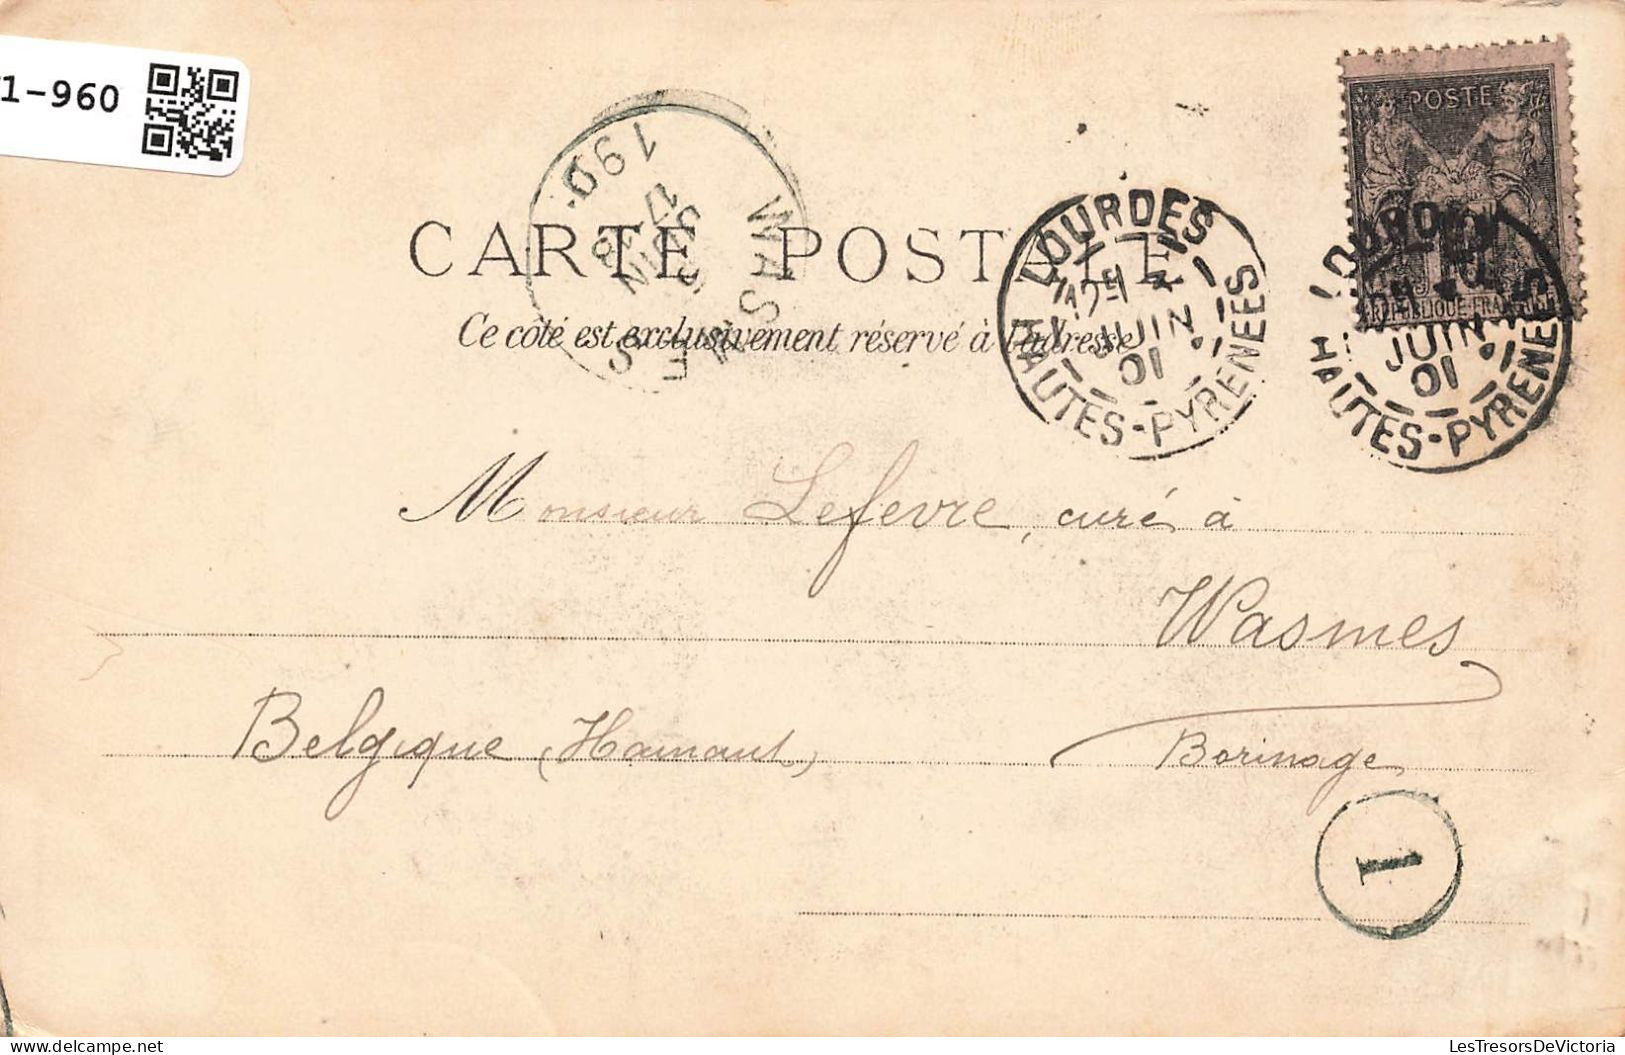 1-960
POSTE
RÉPUBLIQUE FRANÇAISE
WASMES
JUIN
LOURDES
JUIN
01
HAUTES-PYRENEES
LOURDES
JUIN
01
HAUTES-PYRENEES
CARTE POSTALE
Ce côté est exclusivement réservé à l'adresse
Monsieur Lefevre, curé à
Wasmes
Belgique (Hainaut) Borinage
1
LesTresorsDeVictoria